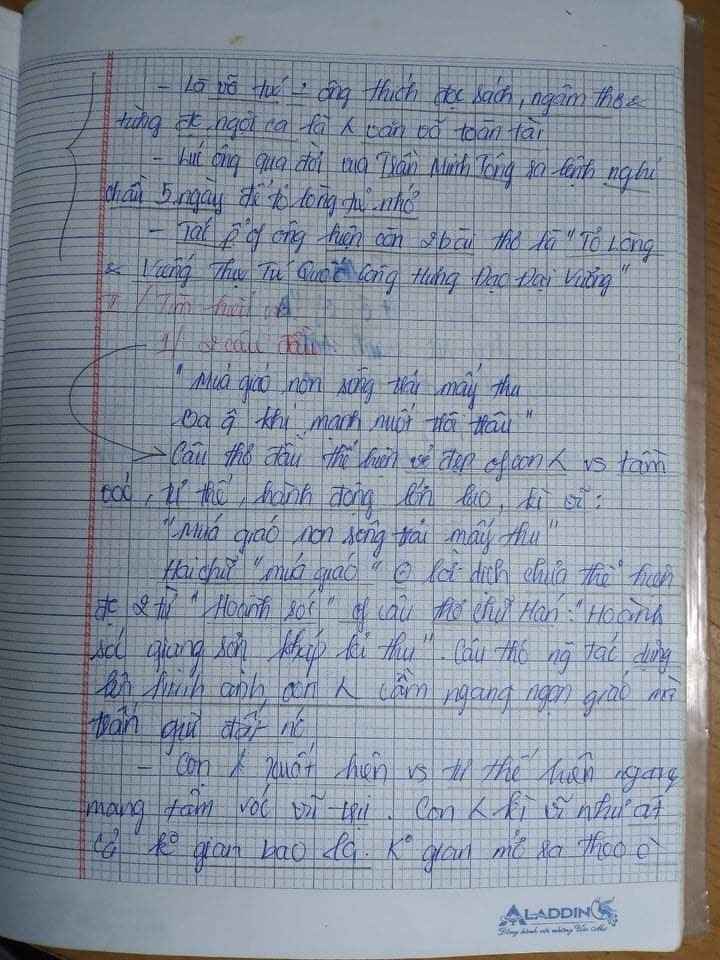 - Là võ tướ : ông thích đọc sách, ngâm thơ &
từng đc ngợi ca là ʎ văn võ toàn tài
- Lúc ông qua đời vua Trần Minh Tông ra lệnh nghỉ
chầu 5 ngày để tỏ lòng tư nhớ
- Tác p² of ông hiện còn 2 bài thơ là "Tỏ Lòng
& Vương Thựơ Tứ Quốc Công Hưng Đạo Đại Vương"
II / Tìm hiểu
1/ 2 câu đầu
"Múa giáo non sông trải mấy thu
Ba q khí mạnh nuốt trôi trâu"
Câu thơ đầu thể hiện vẻ đẹp of con ʎ vs tầm
vóc, tư thế, hành động lớn lao, kì vĩ:
"Múa giáo non sông trải mấy thu"
Hai chữ "múa giáo" ở lời dịch chưa thể hiện
đc 2 từ "Hoành sóc" of câu thơ chữ Hán: "Hoành
sóc giang sơn kháp kỉ thu". Câu thơ ng tác dựng
lên hình ảnh con ʎ cầm ngang ngọn giáo mà
trấn giữ đất nc
- Con ʎ xuất hiện vs tư thế hiên ngang
mang tầm vóc vũ trụ. Con ʎ kì vĩ như át
cả k° gian bao la. K° gian mở ra theo
ALADDIN
Đồng hành với những Ước Mơ